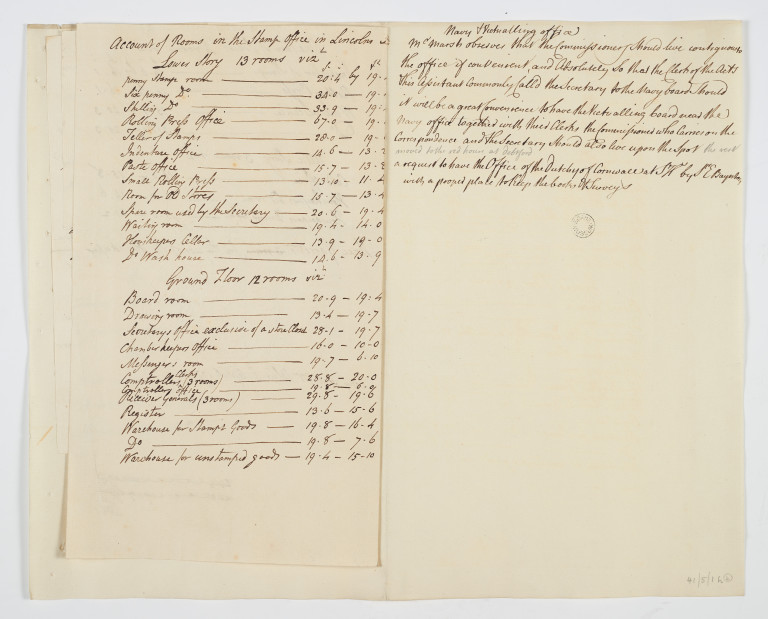 Account of Rooms in the Stamp Office in Lincolns
Lower Story 13 rooms viz
penny Stamp room 20:4 by 19
Six penny Do 34.0 — 19
Shilling Do 33.9 — 19
Rolling Press Office 67.0 — 19
Teller of Stamps 20.0 — 19
Indenture office 14.6 — 13
Paste office 15.7 — 13
Small Rolling Press 13.10 — 11.4
Room for Old Stores 15.7 — 13.4
Spare room used by the Secretary 20.6 — 19.4
Waiting room 19.4 — 14.0
Housekeepers Cellar 13.9 — 19.0
Do Wash house 14.6 — 13.9
Ground Floor 12 rooms viz
Board room 20.9 — 19:4
Drawing room 13.4 — 19.7
Secretarys office exclusive of a store Closet 28.1 — 19.7
Chamber keepers office 16.0 — 10.0
Messengers room 19.7 — 6.10
Comptrollers Clerks (3 rooms) 28.8 — 20.0
Comptrollers office 19.8
Receiver Generals (3 rooms) 29.8 — 19.6
Register 13.6 — 15.6
Warehouse for Stampt Goods 19.8 — 16.4
Do 19.8 — 7.6
Warehouse for unstamped goods — 19.4 — 15.10
Navy & Victualling office
Mc Marsh observes that the Commissioners Should live contiguous to
the office if convenient, and Absolutely so that the Clerk of the Acts
This Assistant Commonly Called the Secretary to the Navy board Should
it will be a great Convenience to have the Victualling board near the
Navy office together with their Clerks the Commissioned who Carries on the
Correspondence and the Secretary Should also live upon the Spot
a request to have the Office of the Dutchy of Cornwall at by
with a proper place to keep the books & Surveys